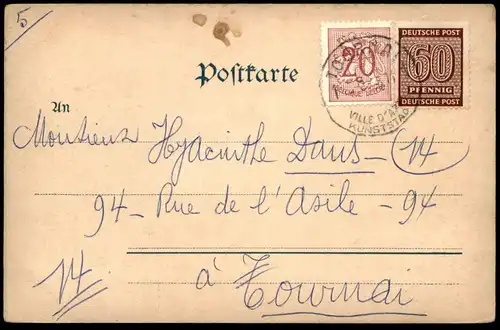 5
20
DEUTSCHE POST
60
PFENNIG
DEUTSCHE POST
VILLE D'
KUNSTSTAD
Postkarte
An
Monsieur Hyacinthe Daus - 14
94 - Rue de l'Asile - 94
14
à Tournai